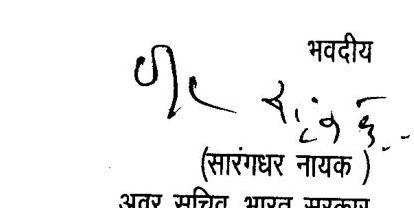 भवदीय
(सारंगधर नायक )
अवर सचिव, भारत सरकार